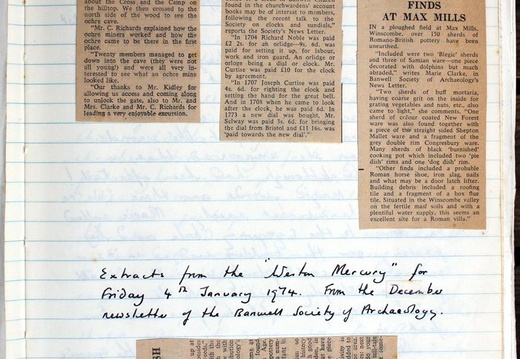 about the Cross and the Camp on
hilltop. We then crossed to the
north side of the wood to see the
ochre cave.
Mr. C. Richards explained how the
ochre miners worked and how the
ochre came to be there in the first
place.
Twenty members managed to get
down into the cave (they were not
all young) and were all very in-
terested to see what an ochre mine
looked like.
"Our thanks to Mr. Kidley for
allowing us access and coming along
to unlock the gate, also to Mr. and
Mrs. Clarke and Mr. C. Richards for
leading a very enjoyable excursion.
found in the churchwardens' account
books may be of interest to members,
following the recent talk to the
Society on clocks and sundials,"
reports the Society's News Letter.
"In 1704 Richard Noble was paid
£2 2s. for an orlidge—9s. 6d. was
paid for setting it up, for labour,
work and iron guard. An orlidge or
orloge being a dial or clock. Mr.
Curtise was paid £10 for the clock
by agreement.
"In 1707 Joseph Curtise was paid
4s. 6d. for righting the clock and
setting the hand for the great bell.
And in 1708 when he came to look
after the clock, he was paid 6d. In
1773 a new dial was bought, Mr.
Selway was paid 3s. 6d. for bringing
the dial from Bristol and £11 16s. was
'paid towards the new dial'."
FINDS
AT MAX MILLS
IN a ploughed field at Max Mills,
Winscombe, over 150 sherds of
Romano-British pottery have been
unearthed.
"Included were two 'Blegic' sherds
and three of Samian ware—one piece
decorated with dolphins but much
abraded," writes Marie Clarke, in
Banwell Society of Archaeology's
News Letter.
"Two sherds of buff mortaria,
having coarse grit on the inside for
grating vegetables and nuts, etc., also
came to light," she comments. "One
sherd of colour coated New Forest
ware was also found together with
a piece of the straight sided Shepton
Mallet ware and a fragment of the
grey double rim Congresbury ware.
Many sherds of black 'burnished'
cooking pot which included two 'pie
dish' rims and one 'dog dish' rim.
"Other finds included a probable
Roman horse shoe, iron slag, nails
and what may be a door latch lifter.
Building debris included a roofing
tile and a fragment of a box flue
tile. Situated in the Winscombe valley
on the fertile marl soils and with a
plentiful water supply, this seems an
excellent site for a Roman villa."
Extracts from the "Weston Mercury" for
Friday 4th January 1974. From the December
newsletter of the Banwell Society of Archaeology.